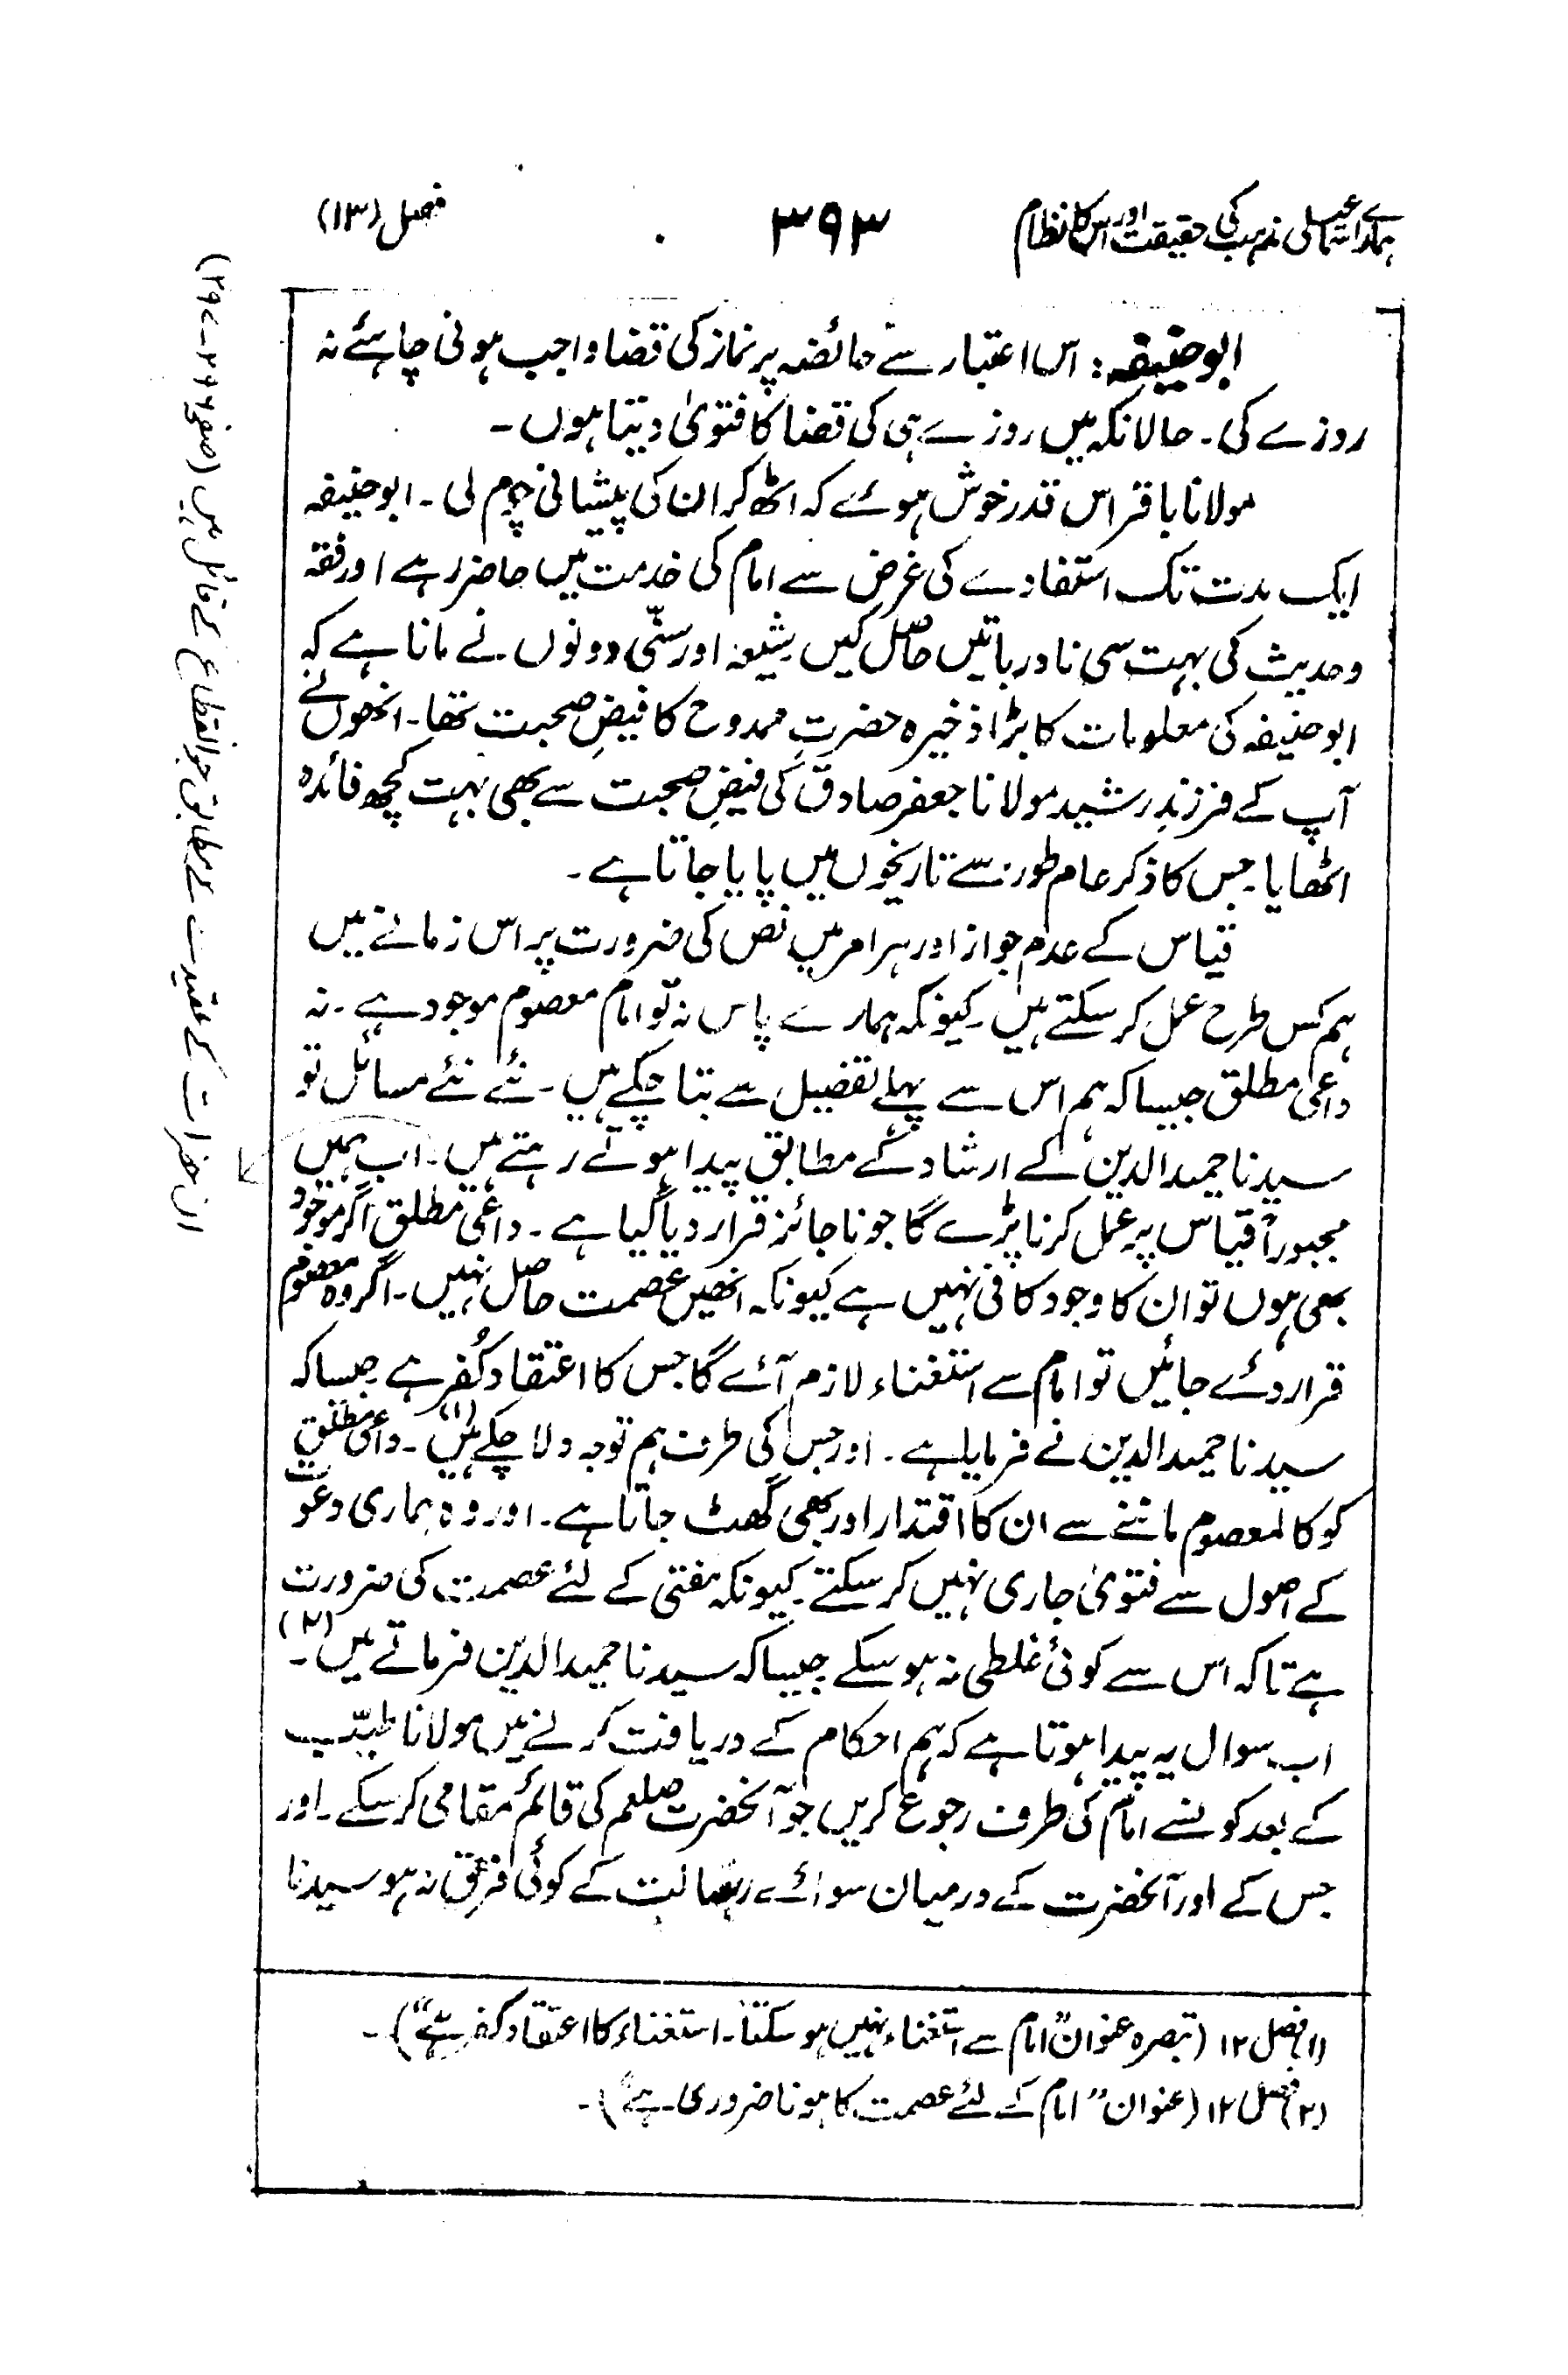 ہمارے اسماعیلی مذہب کی حقیقت اور اس کا نظام
۳۹۳
فصل (۱۳)
ابو حنیفہ: اس اعتبار سے حائضہ پر نماز کی قضا واجب ہونی چاہئے نہ
روزے کی۔ حالانکہ میں روزے ہی کی قضا کا فتویٰ دیتا ہوں۔
مولانا باقر اس قدر خوش ہوئے کہ اٹھ کر ان کی پیشانی چوم لی۔ ابو حنیفہ
ایک مدت تک استفادے کی غرض سے امام کی خدمت میں حاضر رہے اور فقہ
و حدیث کی بہت سی نادر باتیں حاصل کیں۔ شیعہ اور سنّی دونوں نے مانا ہے کہ
ابو حنیفہ کی معلومات کا بڑا ذخیرہ حضرتِ ممدوح کا فیضِ صحبت تھا۔ انھوں نے
آپ کے فرزندِ رشید مولانا جعفر صادق کی فیضِ صحبت سے بھی بہت کچھ فائدہ
اٹھایا۔ جس کا ذکر عام طور سے تاریخوں میں پایا جاتا ہے۔
قیاس کے عدم جواز اور ہر امر میں نص کی ضرورت پر اس زمانے میں
ہم کس طرح عمل کر سکتے ہیں۔ کیونکہ ہمارے پاس نہ تو امام معصوم موجود ہے۔ نہ
داعی مطلق جیسا کہ ہم اس سے پہلے تفصیل سے بتا چکے ہیں۔ نئے نئے مسائل تو
سیدنا حمید الدین کے ارشاد کے مطابق پیدا ہوتے رہتے ہیں۔ اب ہمیں
مجبوراً قیاس پر عمل کرنا پڑے گا جو ناجائز قرار دیا گیا ہے۔ داعی مطلق اگر موجود
بھی ہوں تو ان کا وجود کافی نہیں ہے کیونکہ انھیں عصمت حاصل نہیں۔ اگر وہ معصوم
قرار دئے جائیں تو امام سے استغناء لازم آئے گا جس کا اعتقاد کُفر ہے جیسا کہ
سیدنا حمید الدین نے فرمایا ہے۔ اور جس کی طرف ہم توجہ دلا چکے ہیں (۱)۔ داعی مطلق
کو کالمعصوم ماننے سے ان کا اقتدار اور بھی گھٹ جاتا ہے۔ اور وہ ہماری دعوت
کے اصول سے فتویٰ جاری نہیں کر سکتے۔ کیونکہ مفتی کے لئے عصمت کی ضرورت
ہے تاکہ اس سے کوئی غلطی نہ ہو سکے جیسا کہ سیدنا حمید الدین فرماتے ہیں (۲)۔
اب سوال یہ پیدا ہوتا ہے کہ ہم احکام کے دریافت کرنے میں مولانا طیّب
کے بعد کونسے امام کی طرف رجوع کریں جو آنحضرت صلعم کی قائم مقامی کر سکے۔ اور
جس کے اور آنحضرت کے درمیان سوائے رسالت کے کوئی فرق نہ ہو سیدنا
(۱) فصل ۱۲ (تبصرہ عنوان "امام سے استغناء نہیں ہو سکتا۔ استغناء کا اعتقاد کفر ہے")۔
(۲) فصل ۱۲ (عنوان "امام کے لئے عصمت کا ہونا ضروری ہے")۔
ان حضرات کے عقیدت کے مطابق جو انقطاع کے قائل ہیں (صفحہ ۲۶۶-۲۹۷)